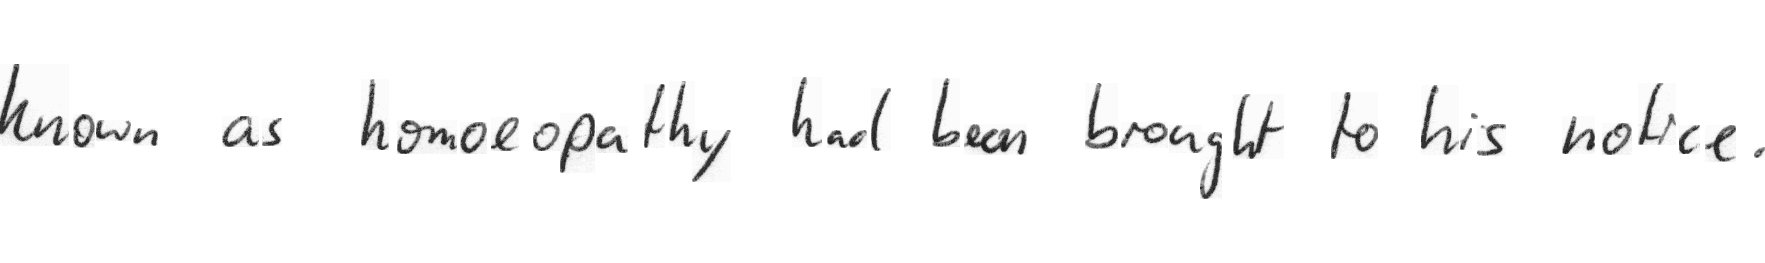 known as homoeopathy had been brought to his notice.